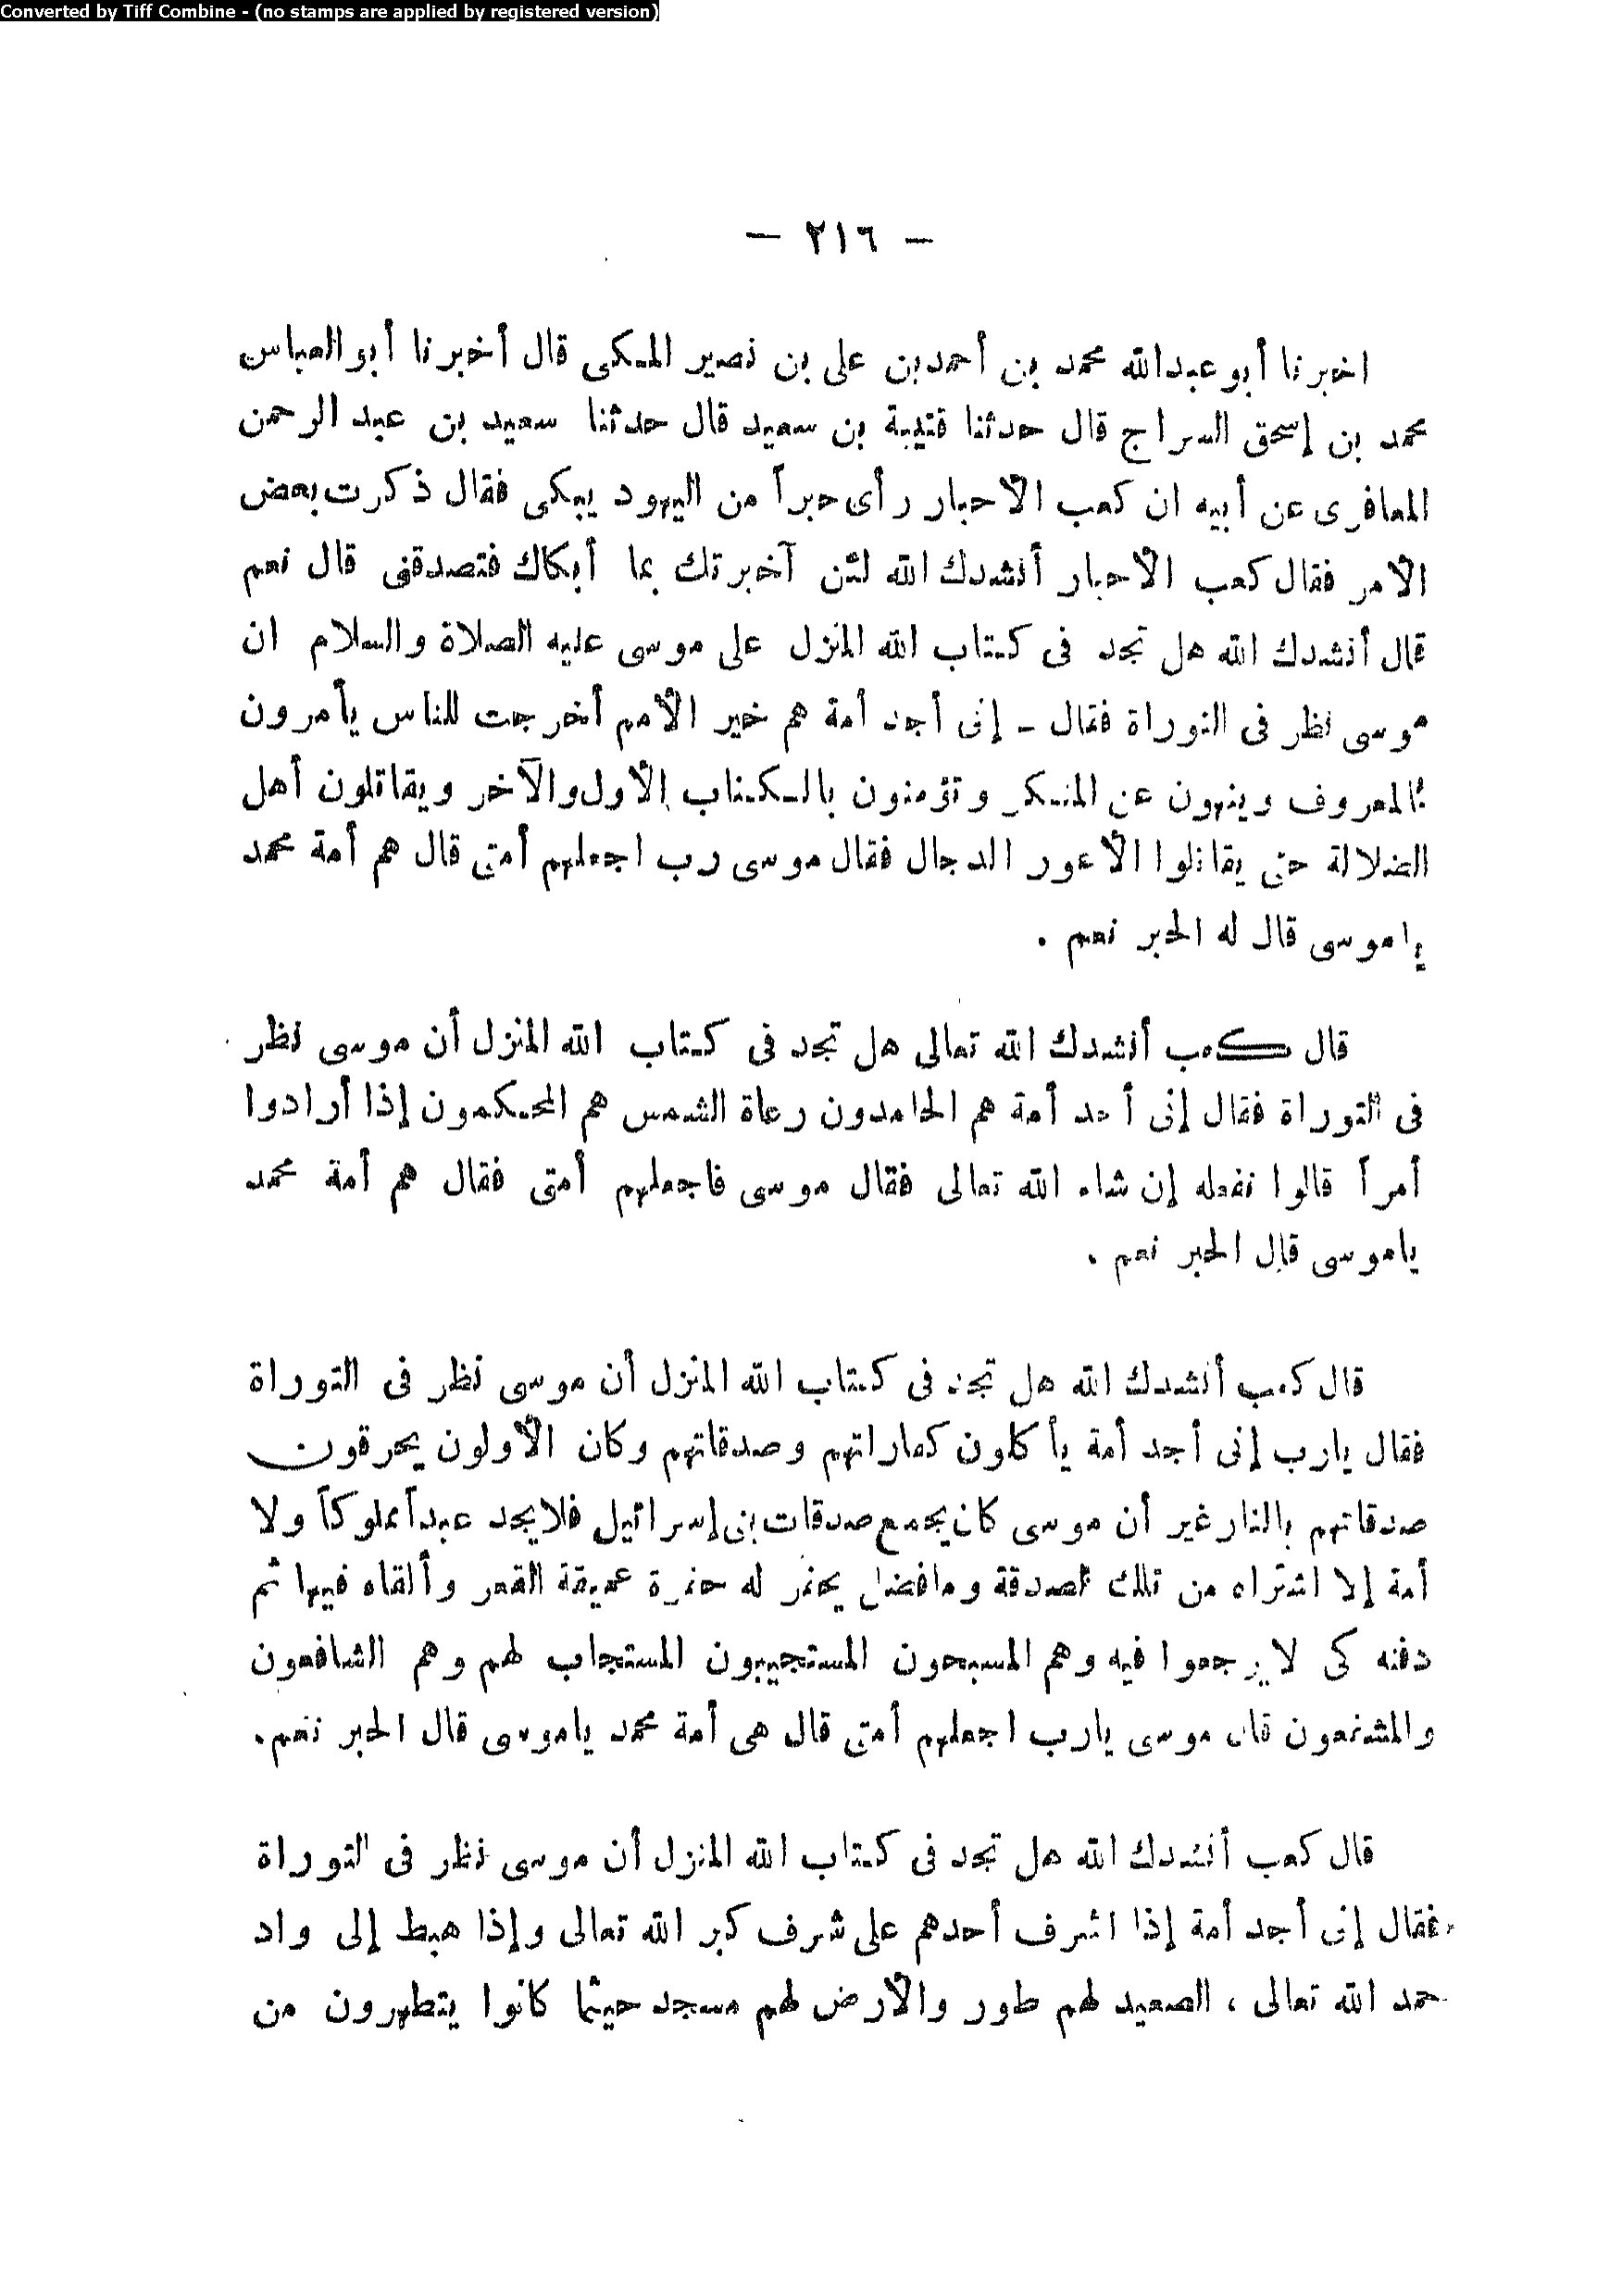 Converted by Tiff Combine - (no stamps are applied by registered version)
— ٢١٦ —
اخبرنا أبو عبدالله محمد بن أحمد بن على بن نصير المكى قال أخبرنا أبو العباس
محمد بن إسحق السراج قال حدثنا قتيبة بن سعيد قال حدثنا سعيد بن عبد الرحمن
المعافرى عن أبيه ان كعب الأحبار رأى حبراً من اليهود يبكى فقال ذكرت بعض
الأمر فقال كعب الأحبار أنشدك الله لئن آخبرتك بما أبكاك فتصدقنى قال نعم
قال أنشدك الله هل تجد فى كتاب الله المنزل على موسى عليه الصلاة والسلام ان
موسى نظر فى التوراة فقال - إنى أجد أمة هم خير الأمم أخرجت للناس يأمرون
بالمعروف وينهون عن المنكر وتؤمنون بالكتاب الأول والآخر ويقاتلون أهل
الضلالة حتى يقاتلوا الأعور الدجال فقال موسى رب اجعلهم أمتى قال هم أمة محمد
يا موسى قال له الحبر نعم .
قال كعب أنشدك الله تعالى هل تجد فى كتاب الله المنزل أن موسى نظر
فى التوراة فقال إنى أجد أمة هم الحامدون رعاة الشمس هم المحكمون إذا أرادوا
أمراً قالوا نفعله إن شاء الله تعالى فقال موسى فاجعلهم أمتى فقال هم أمة محمد
ياموسى قال الحبر نعم .
قال كعب أنشدك الله هل تجد فى كتاب الله المنزل أن موسى نظر فى التوراة
فقال يارب إنى أجد أمة يأكلون كفاراتهم وصدقاتهم وكان الأولون يحرقون
صدقاتهم بالنار غير أن موسى كان يجمع صدقات بنى إسرائيل فلا يجد عبداً مملوكاً ولا
أمة إلا اشتراه من تلك الصدقة وما فضل يحفر له حفرة عميقة القعر وألقاه فيها ثم
دفنه كى لا يرجعوا فيه وهم المسبحون المستجيبون المستجاب لهم وهم الشافعون
والمشفعون قال موسى يارب اجعلهم أمتى قال هى أمة محمد ياموسى قال الحبر نعم.
قال كعب أنشدك الله هل تجد فى كتاب الله المنزل أن موسى نظر فى التوراة
فقال إنى أجد أمة إذا اشرف أحدهم على شرف كبر الله تعالى وإذا هبط إلى واد
حمد الله تعالى ، الصعيد لهم طور والأرض لهم مسجد حيثما كانوا يتطهرون من